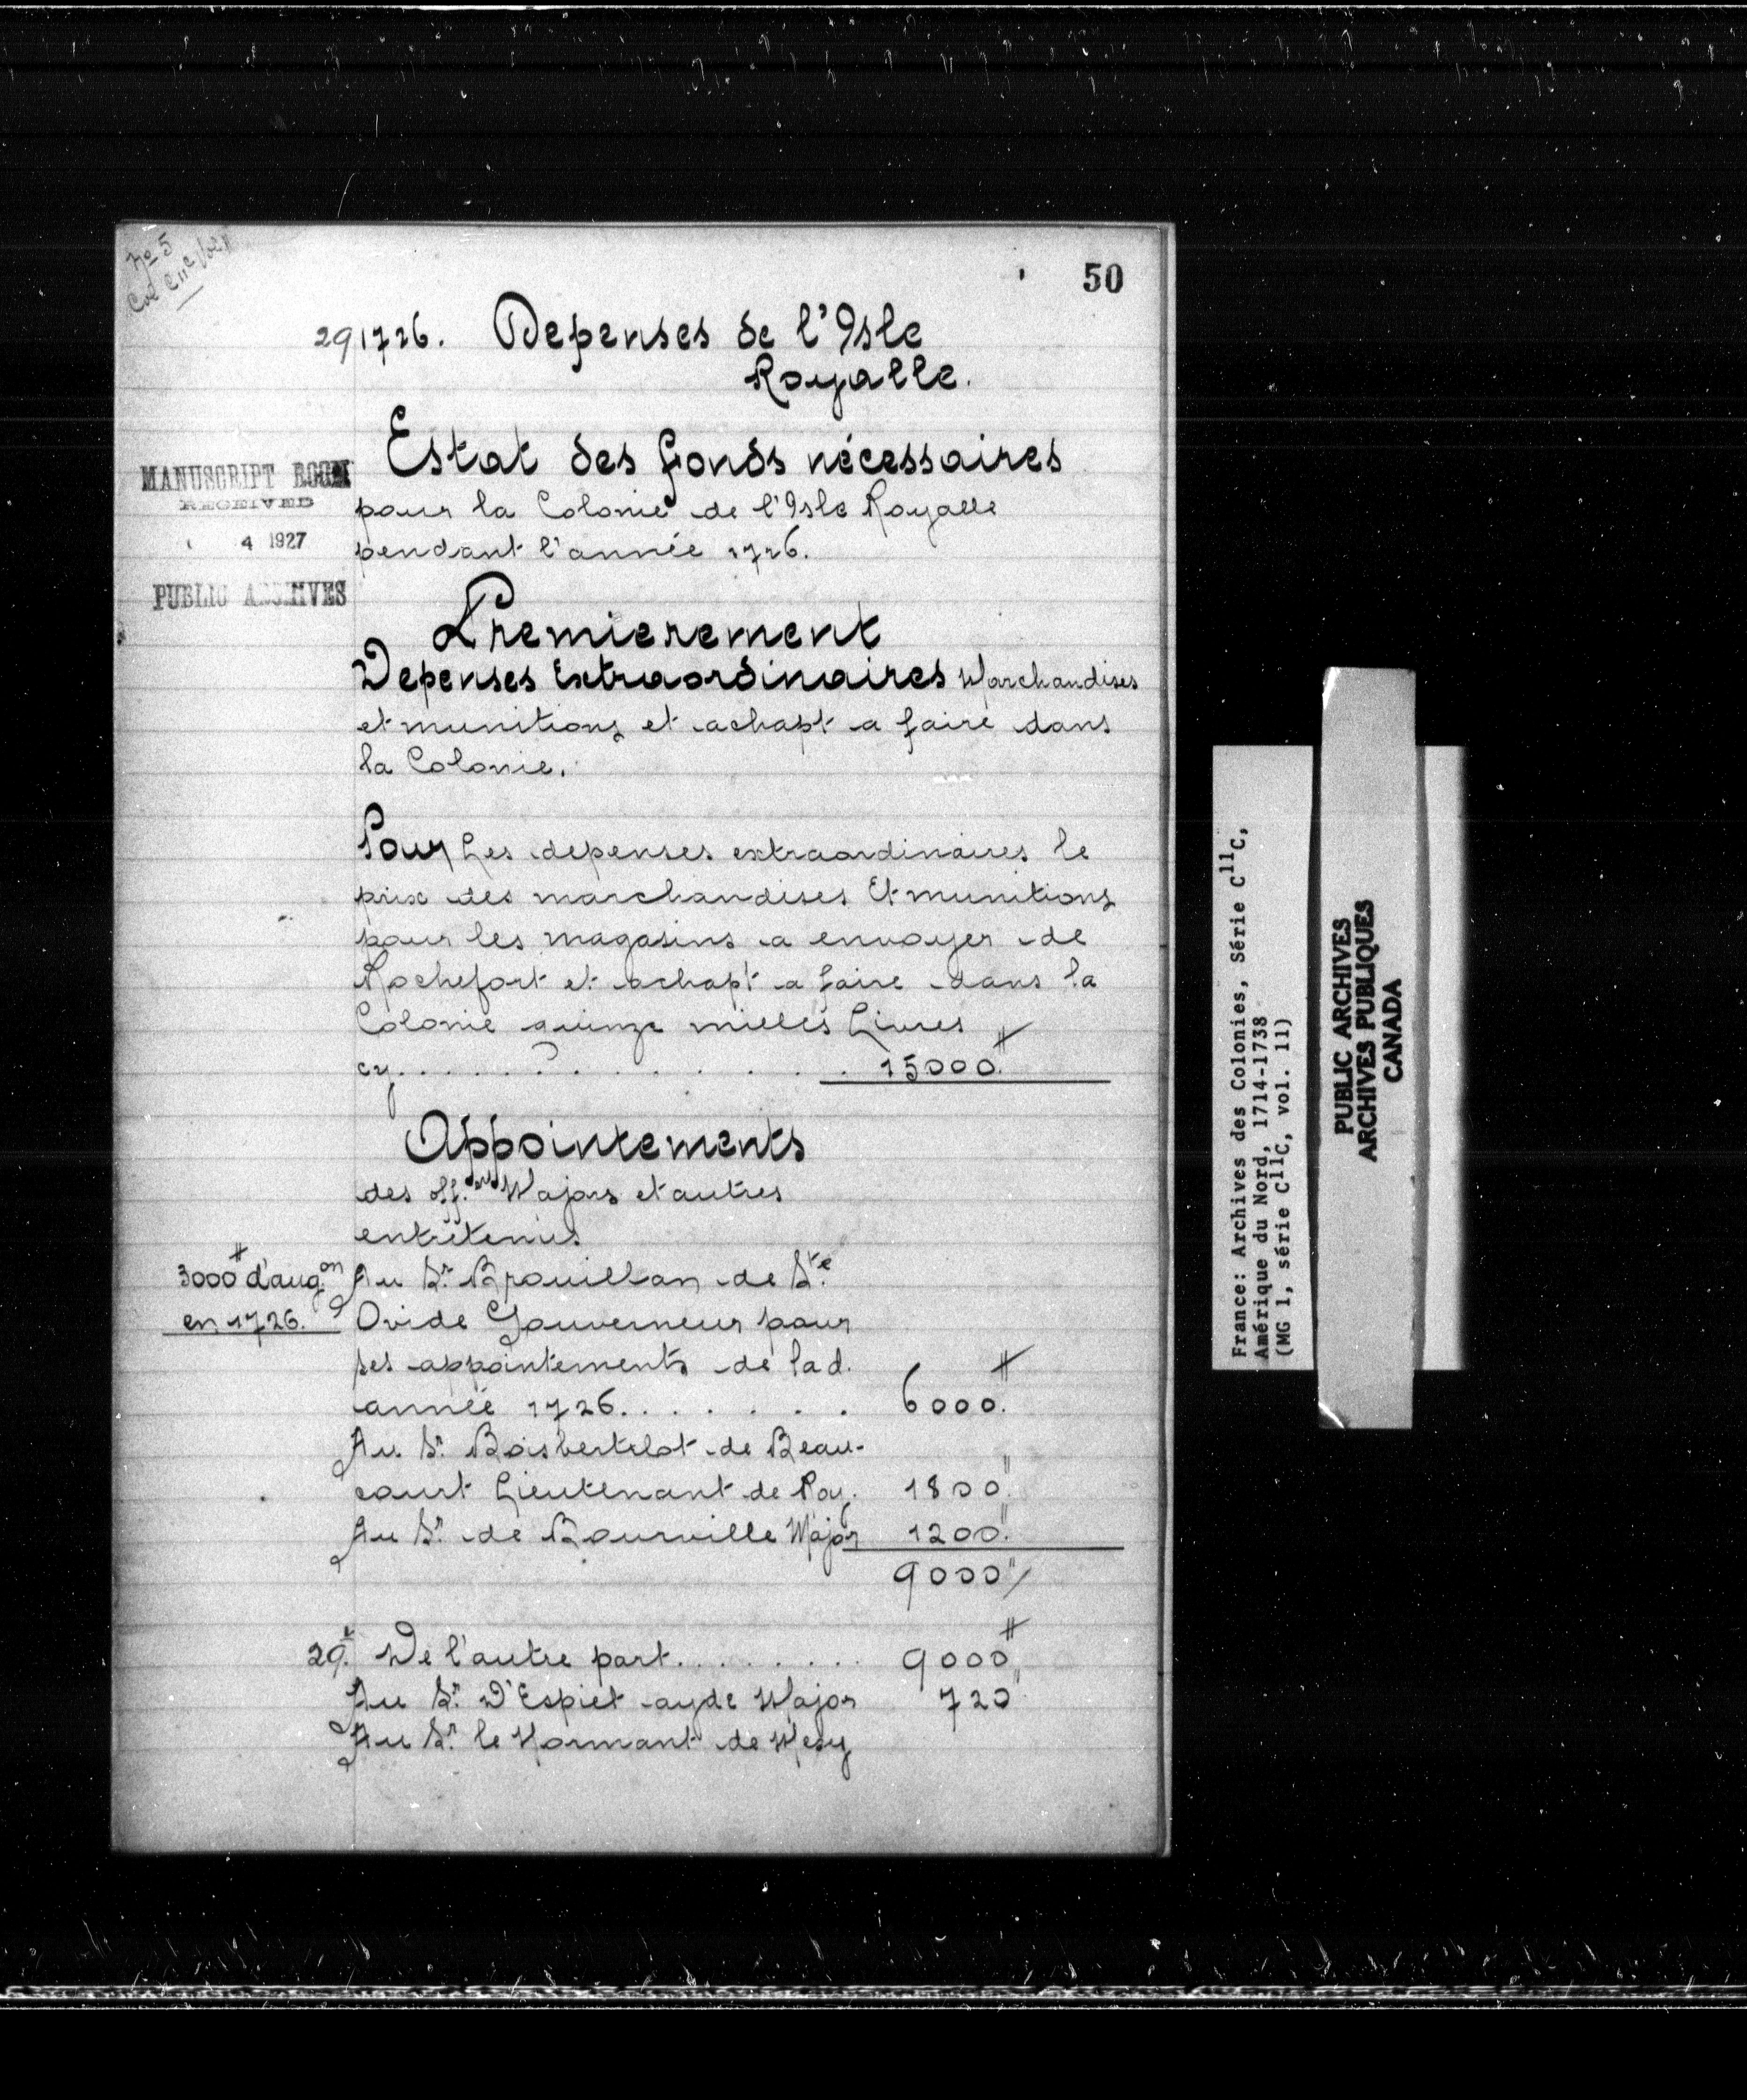 No 5
50
29 1726. Depenses de l'Isle
Royalle.
Estat des fonds nécessaires
pour la Colonie de l'Isle Royalle
pendant l'année 1726.
MANUSCRIPT ROOM
RECEIVED
4 1927
PUBLIC ARCHIVES
Premierement
Depenses Extraordinaires Marchandises
et munitions et achapt a faire dans
la Colonie.
Pour Les depenses extraordinaires le
prix des marchandises Et munitions
pour les magasins a envoyer de
Rochefort et achapt a faire dans la
Colonie quinze milles Livres
cy. . . . . . . . . . . . 15000.#
Appointements
des off.ers Majors et autres
entretenus
3000# d'augon
en 1726.
Au Sr. Brouillan de Ste.
Ovide Gouverneur pour
ses appointements de lad.
année 1726. . . . . . . 6000.#
Au Sr. Boisbertelot de Beau-
court Lieutenant de Roy. 1800."
Au Sr. de Bourville Major 1200."
9000"/
29.v De l'autre part. . . . . . . . . 9000#
Au Sr. D'Espiet ayde Major 720"
Au Sr. le Normant de Mesy
France: Archives des Colonies, Série C11C,
Amérique du Nord, 1714-1738
(MG 1, série C11C, vol. 11)
PUBLIC ARCHIVES
ARCHIVES PUBLIQUES
CANADA